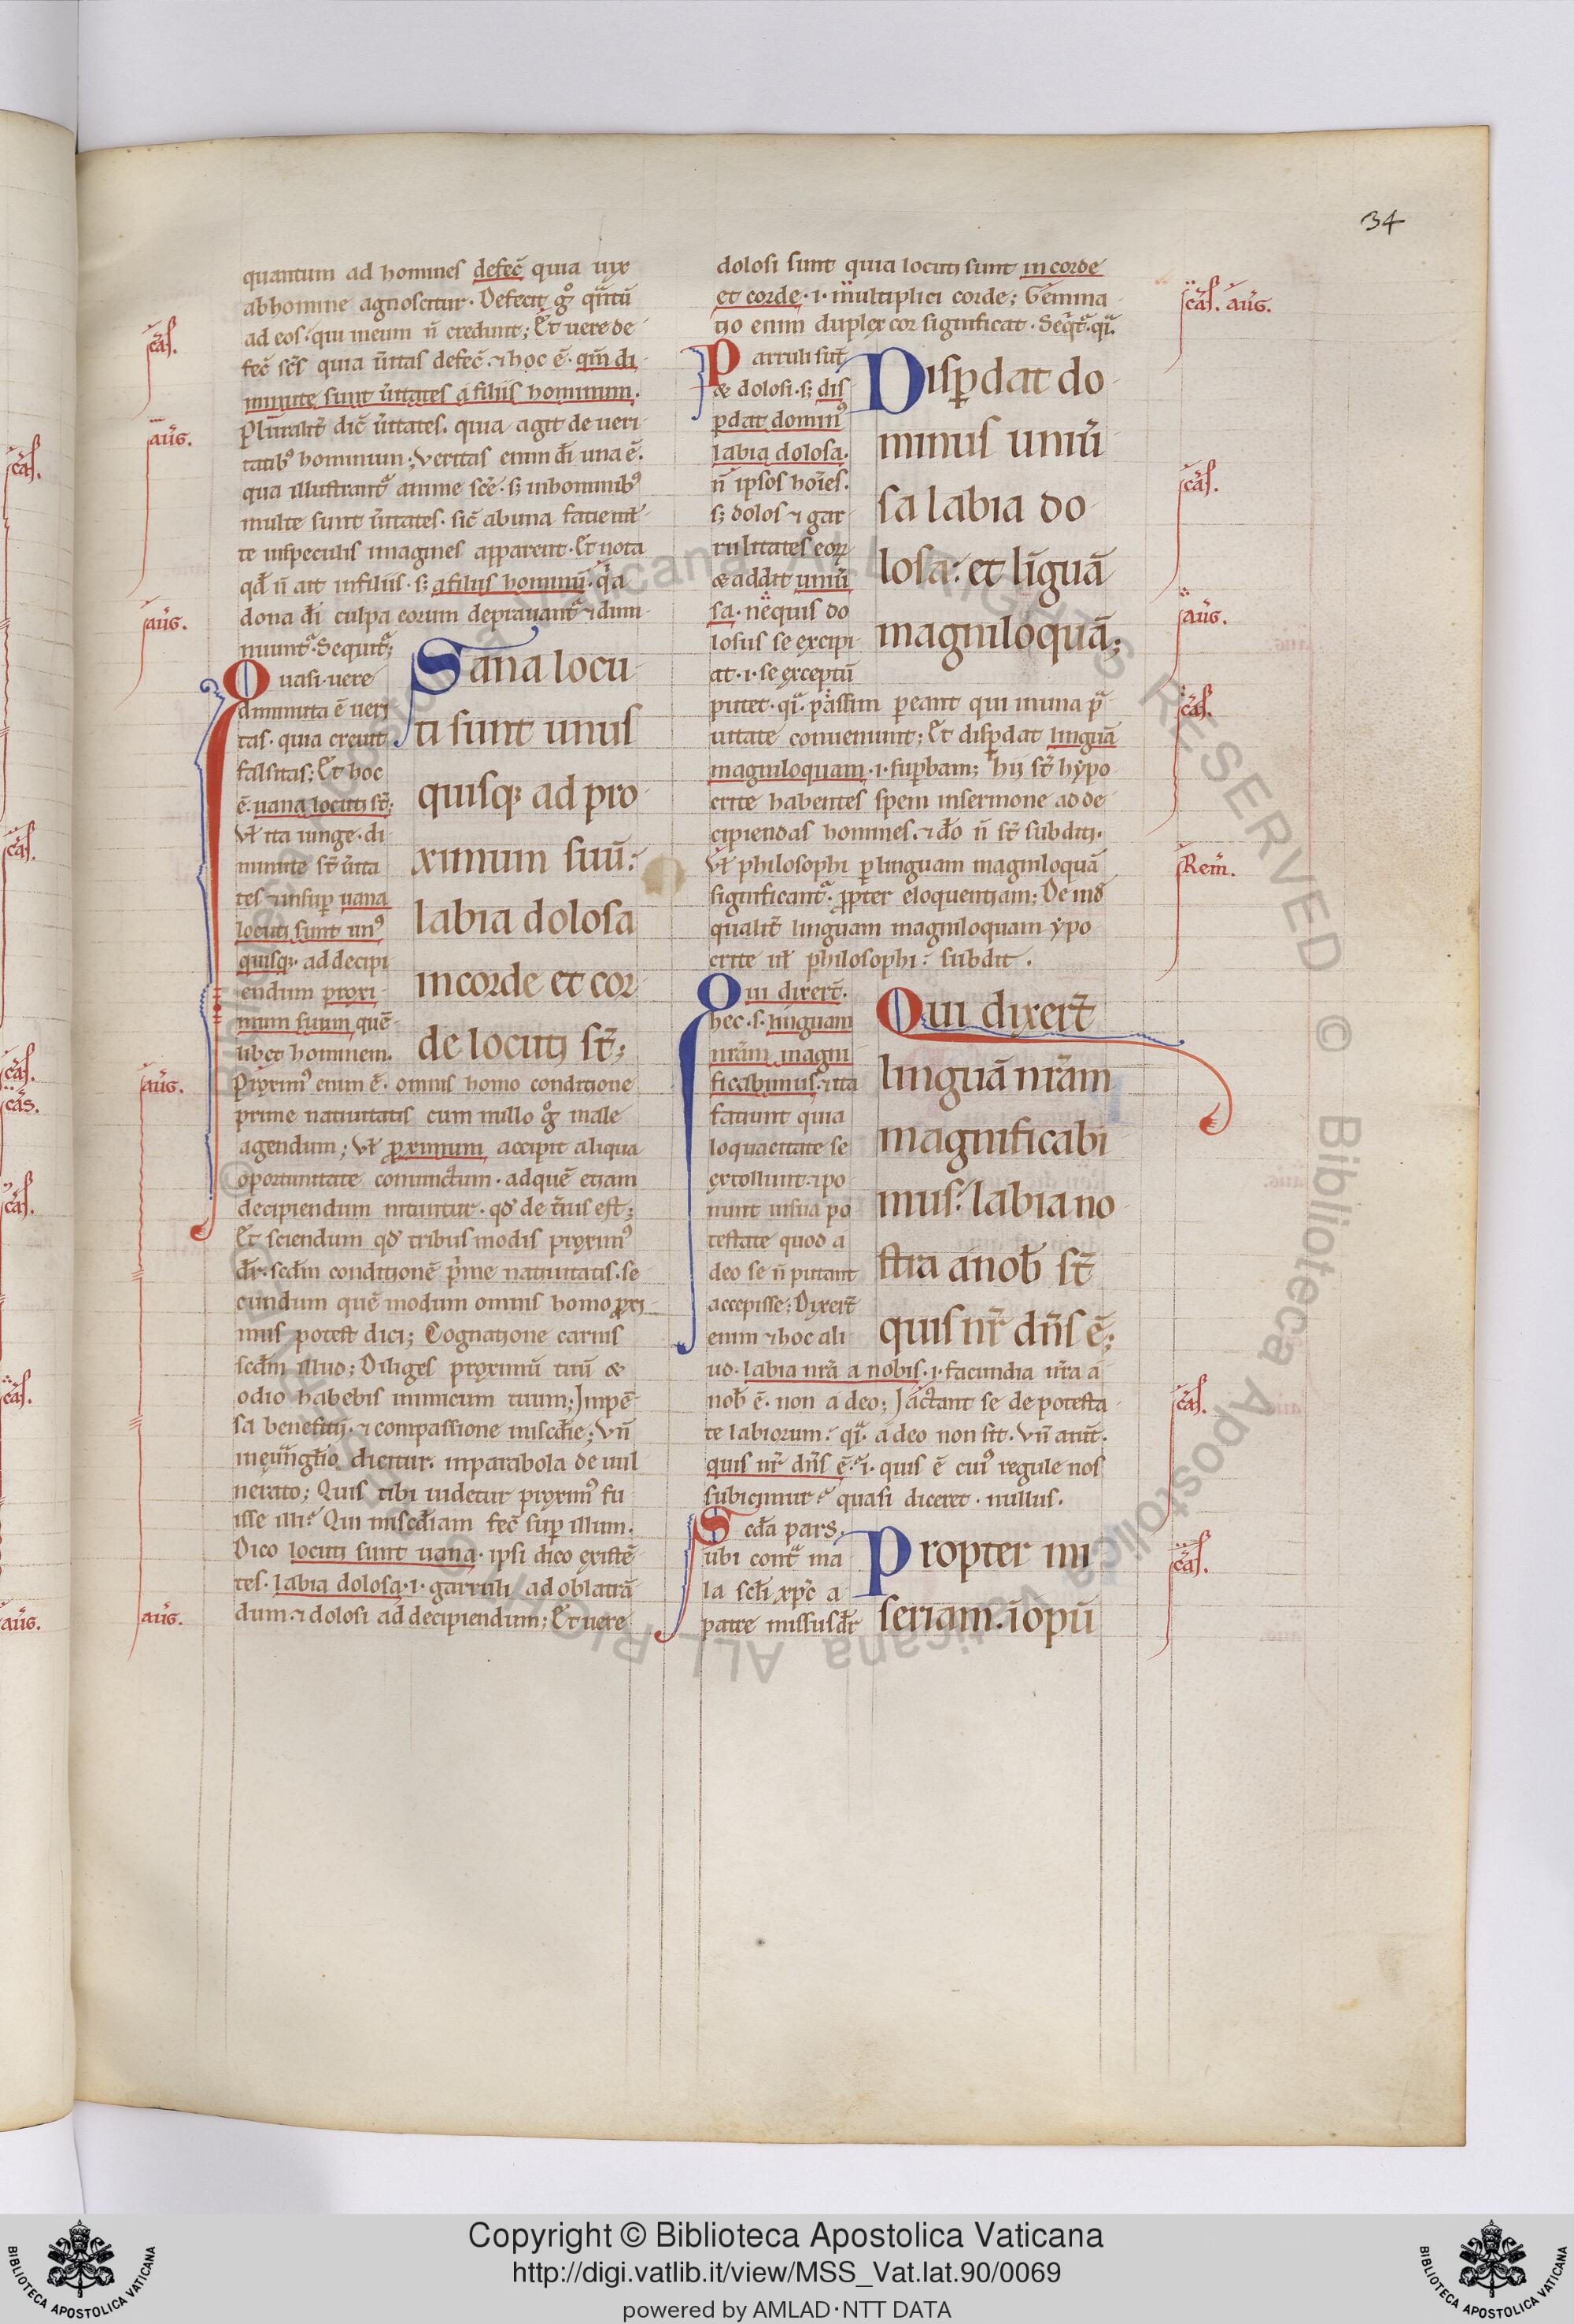 34
quantum ad homines defec̄ quia uix
ab homine agnoscitur. Defecit gͦ qͣntū
ad eos. qui in eum n̄ credunt; Et uere de
fec̄ sc̄s quia ūitas defec̄. ⁊ hoc ē. qm̄ di
minute sunt ūitates a filiis hominum.
Pluralit̄ dic̄ ūitates. quia agit de ueri
tatibꝰ hominum; Veritas enim d̄i una ē.
qua illustrant᷑ anime sc̄e. sꝫ in hominibꝰ
multe sunt ūitates. sic̄ ab una facie m̄l
te in speculis imagines apparent. Et nota
qđ n̄ ait in filiis. sꝫ a filiis hominū. qͥa
dona d̄i culpa eorum deprauant᷑ ⁊ dimi
nuunt᷑. Sequit᷑;
Quasi. uere
diminuta ē ueri
tas. quia creuit
falsitas; Et hoc
ē. uana locuti st̄;
Vł ita iunge. di
minute st̄ ūita
tes ⁊ insuꝑ uana
locuti sunt unꝰ
quisqꝫ. ad decipi
endum proxi
mum suum quē
libet hominem.
Proximꝰ enim ē. omnis homo conditione
prime natiuitatis cum nullo gͦ male
agendum; Vł proximum accipit aliqua
oportunitate coniunctum. ad quē etiam
decipiendum nituntur. qđ det̄ius est;
Et sciendum qđ tribus modis proximꝰ
dr̄. scd̄m conditionē pͥme natiuitatis. se
cundum quē modum omnis homo proxi
mus potest dici; Cognatione carnis
scd̄m illud; Diliges proximū tuū &
odio habebis inimicum tuum; Inpē
sa beneficij. ⁊ compassione misc̄die; Vn̄
in euͣngłio dicitur. in parabola de uul
nerato; Quis tibi uidetur proximꝰ fu
isse illi? Qui misc̄diam fec̄ suꝑ illum.
Dico locuti sunt uana. ipsi dico existē
tes. labia dolosa. i. garruli ad oblatrā
dum. ⁊ dolosi ad decipiendum; Et uere
Uana locu
ti sunt unus
quisqꝫ ad pro
ximum suū:
labia dolosa
in corde et cor
de locuti st̄;
dolosi sunt quia locuti sunt in corde
et corde. i. in multiplici corde; Gemina
tio enim duplex cor significat. Seqͥt᷑. qͣ.
Parruli sūt
& dolosi. sꝫ dis
ꝑdat dominꝰ
labia dolosa.
n̄ ipsos hoīes.
sꝫ dolos ⁊ gar
rulitates eoꝝ
& addit uniū
sa. ne quis do
losus se excipi
at. i. se exceptū
putet. qͣ. passim ꝑeant qui in una pͣ
uitate conueniunt; Et disꝑdat linguā
magniloquam. i. suꝑbam; hij st̄ hypo
crite habentes spem in sermone ad de
cipiendas homines. ⁊ d̄o n̄ st̄ subditi.
Vł philosophi ꝑ linguam magniloquā
significant᷑. propter eloquentiam; De m̄o
qualit̄ linguam magniloquam ypo
crite ul̄ philosophi: subdit.
Qui dixert̄.
hec. s. linguam
nr̄am magni
ficabimus. ⁊ ita
faciunt quia
loquacitate se
extollunt. ⁊ po
nunt in sua po
testate quod a
deo se n̄ putant
accepisse; Dixert̄
enim ⁊ hoc ali
ud. labia nr̄a a nobis. i. facundia nr̄a a
nob̄ ē. non a deo; Iactant se de potesta
te labiorum: qͣ. a deo non sit. Vn̄ aiūt.
quis nr̄ dn̄s ē? i. quis ē cuiꝰ regule nos
subicimur? quasi diceret. nullus.
Scd̄a pars.
ubi contͣ ma
la scl̄i xp̄c a
patre missus dr̄
Disꝑdat do
minus uniū
sa labia do
losa: et līguā
magniloquā;
Qui dixert̄
linguā nr̄am
magnificabi
mus: labia no
stra a nob̄ st̄
quis nr̄ dn̄s ē;
Propter mi
seriam. īopū
cas.
aug.
aug.
aug.
aug.
cas. aug.
cas.
aug.
cas.
Rem̄.
cas.
cas.
Copyright © Biblioteca Apostolica Vaticana
http://digi.vatlib.it/view/MSS_Vat.lat.90/0069
powered by AMLAD·NTT DATA
BIBLIOTECA APOSTOLICA VATICANA
BIBLIOTECA APOSTOLICA VATICANA